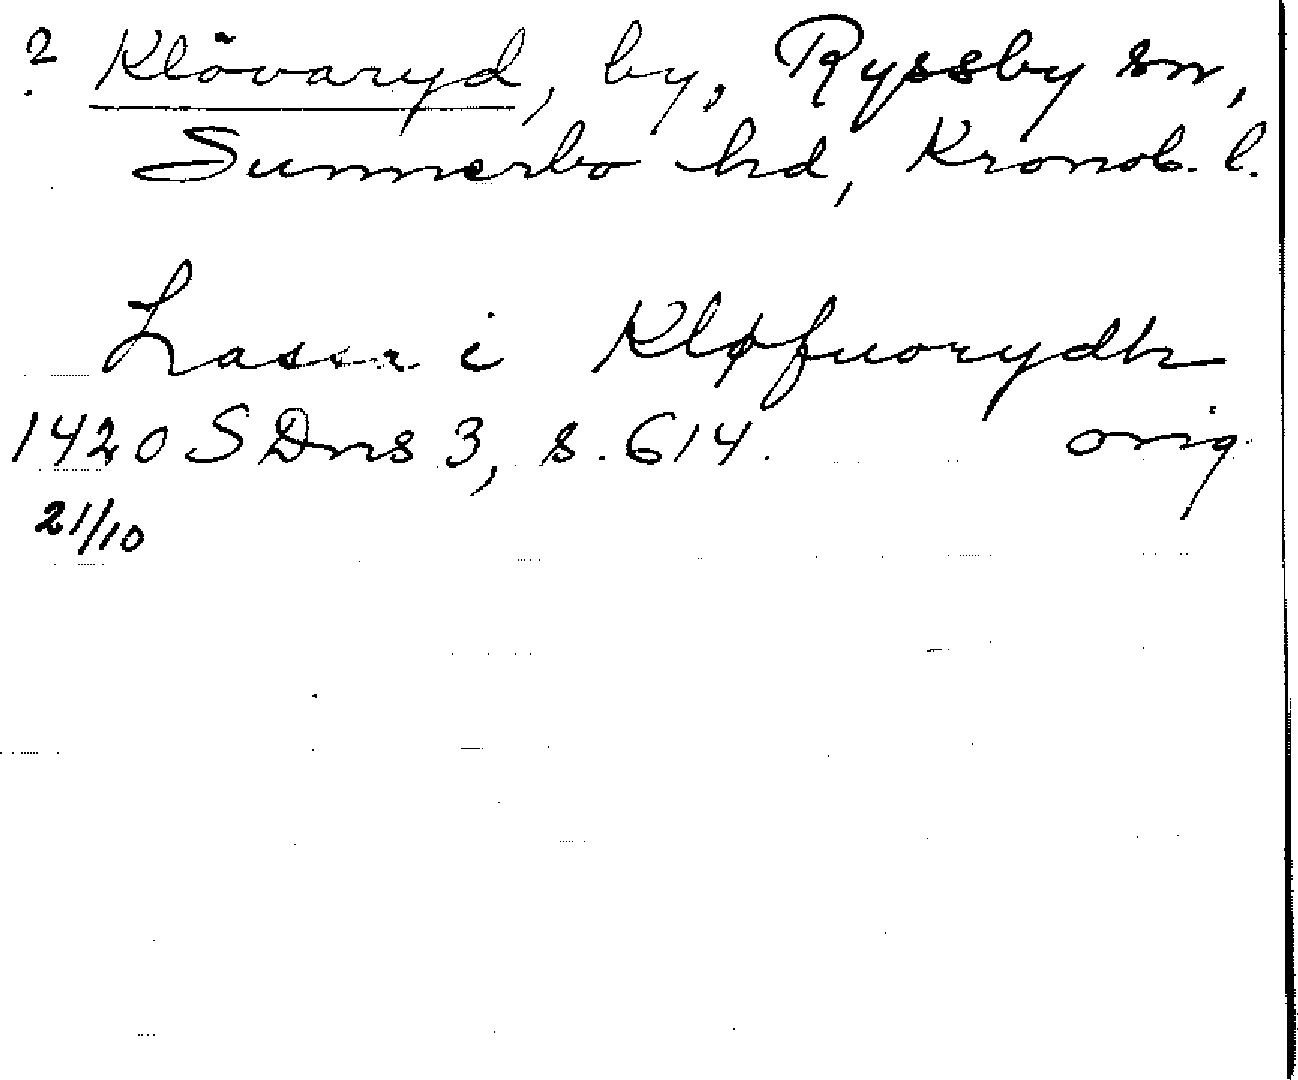 ? Klövaryd, by, Ryssby sn,
Sunnerbo hd, Kronob. l.
Lassa i Kløfuorydh
1420 SDns 3, s. 614. orig.
21/10